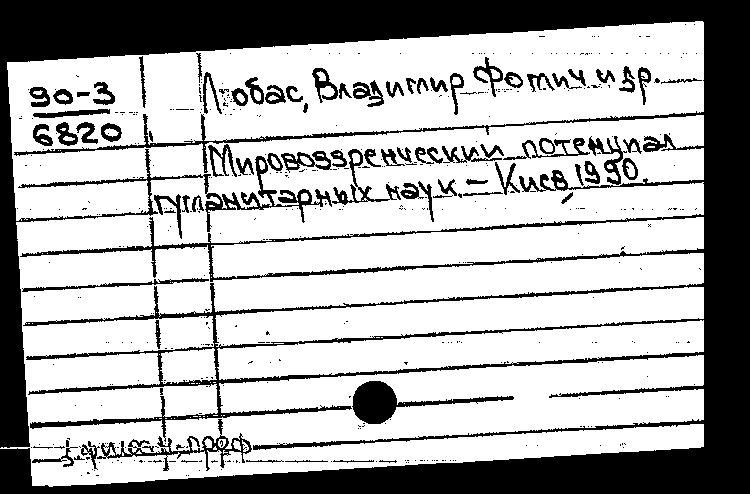 90-3
6820
Любас, Владимир Фотич и др.
Мировоззренческий потенциал
гуманитарных наук. – Киев, 1990.